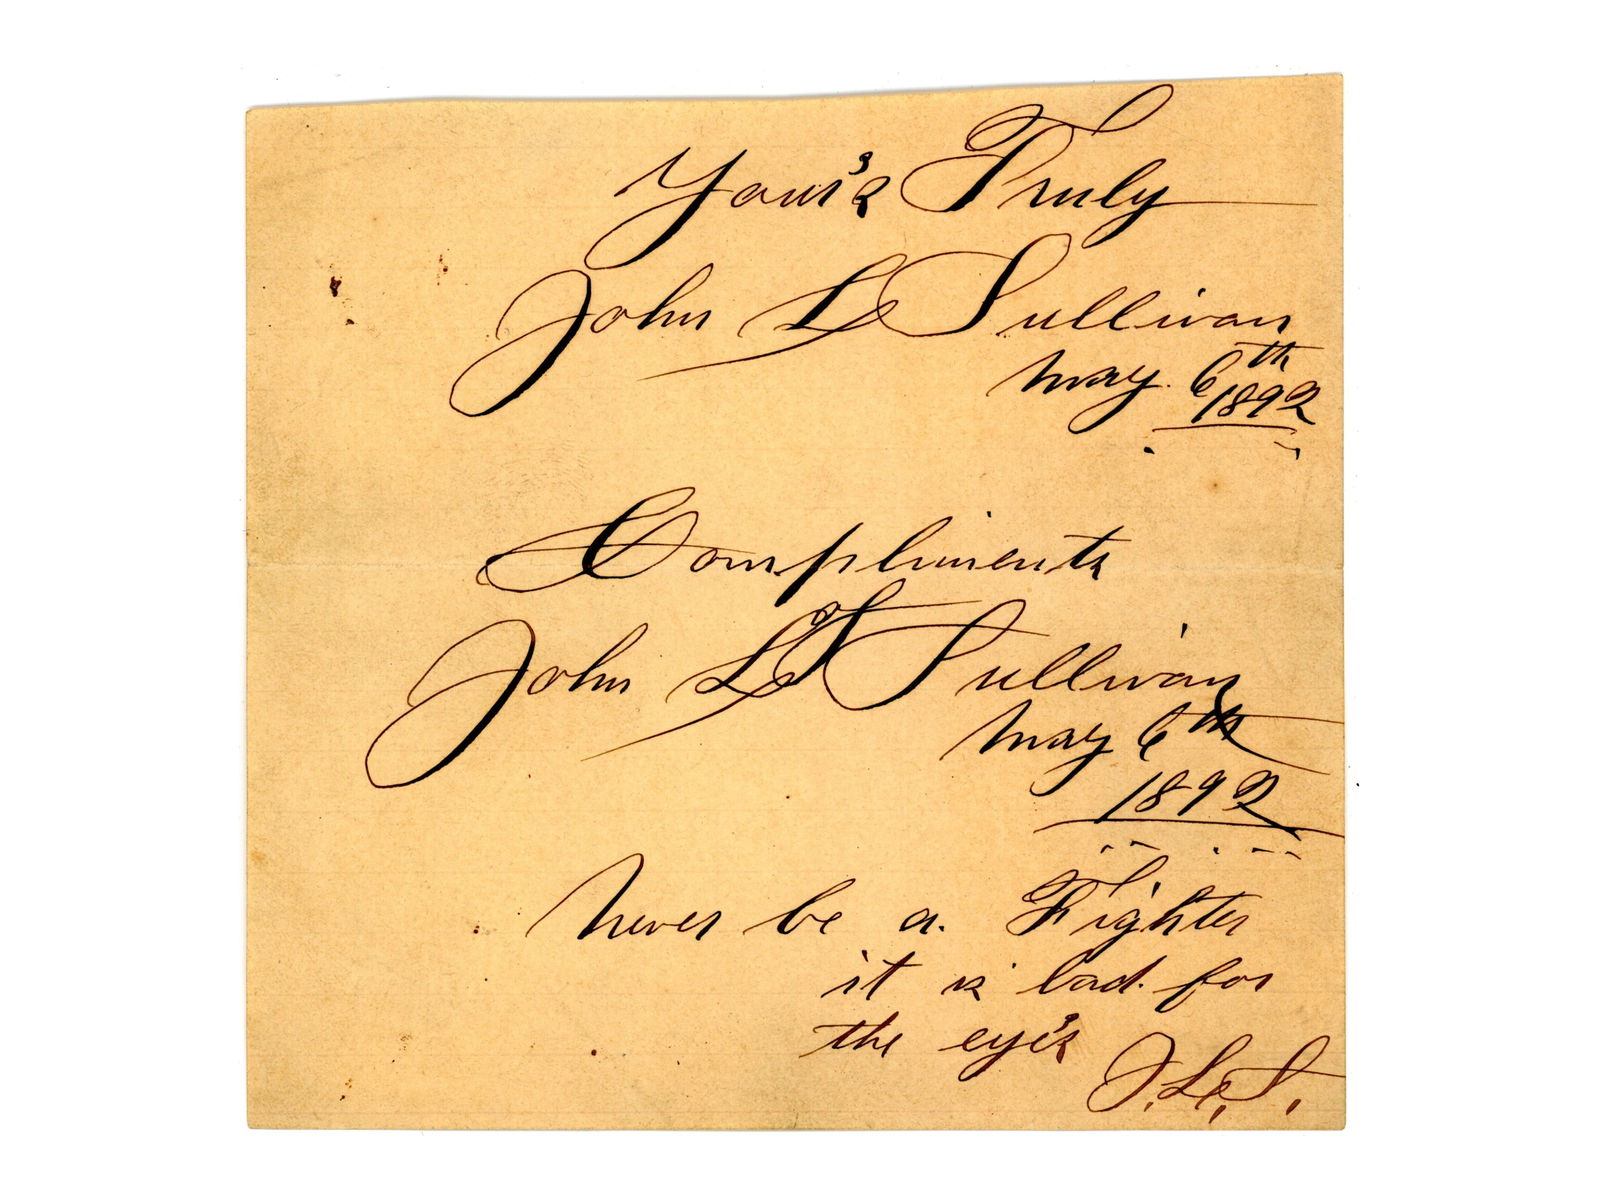 Your's Truly
John L Sullivan
May. 6th
1892
Compliments
of
John L Sullivan
May 6th
1892
Never be a. Fighter
it is bad. for
the eye's
J. L. S.